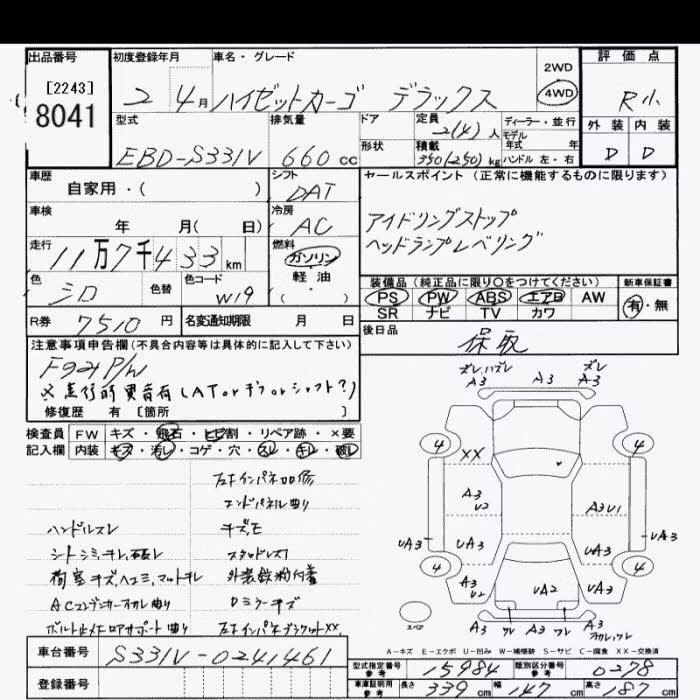 出品番号
[2243]
8041
初度登録年月
2 4月
車名・グレード
ハイゼットカーゴ デラックス
2WD
4WD
評価点
R小
外装 内装
D D
型式
EBD-S331V
排気量
660cc
ドア
形状
定員
2(4)人
積載
350(250)kg
ディーラー・並行
モデル
年式 年
ハンドル 左・右
車歴
自家用・( )
シフト
DAT
車検
年 月( 日)
冷房
AC
走行
11万7千433km
燃料
ガソリン
軽・油
( )
色
シロ
色替
色コード
W19
R券
7510円
名変通知期限 月 日
セールスポイント(正常に機能するものに限ります)
アイドリングストップ
ヘッドランプレベリング
装備品(純正品に限り○をつけてください)
新車保証書
PS PW ABS エアB AW
SR ナビ TV カワ
有・無
後日品
保取
注意事項申告欄(不具合内容等は具体的に記入して下さい)
Fのみ P/W
※走行時異音有(ATorデフorシャフト?)
修復歴 有[箇所 ]
検査員
記入欄
FW キズ・飛石・ヒビ割・リペア跡・×要
内装 キズ・汚レ・コゲ・穴・スレ・キレ・破レ
左右インパネ凹修
エンドパネル曲り
ハンドルスレ
シートシミ、キレ、破レ
荷室キズ、ヘコミ、マットキレ
ACコンデンサーカバー曲り
ボルト止メロアサポート曲り
スタッドレス1
外装鉄粉付着
Dミラーキズ
左右インパネブラケットXX、
ズレ,ハズレ
A3
A3
ズレ
A3
4
4
XX
A3
U2
A3U1
UA3
UA3
UA3
UA3
4
4
A3
U2
UA2
A3
ワレ
ワレ
A3
スペア
A-キズ E-エクボ U-凹み W-補修跡 S-サビ C-腐食 XX-交換済
車台番号
S331V-0241461
登録番号
型式指定番号
参考
15984
類別区分番号
参考
0278
車庫証明用
参考
長さ 339cm 幅 147cm 高さ 187cm